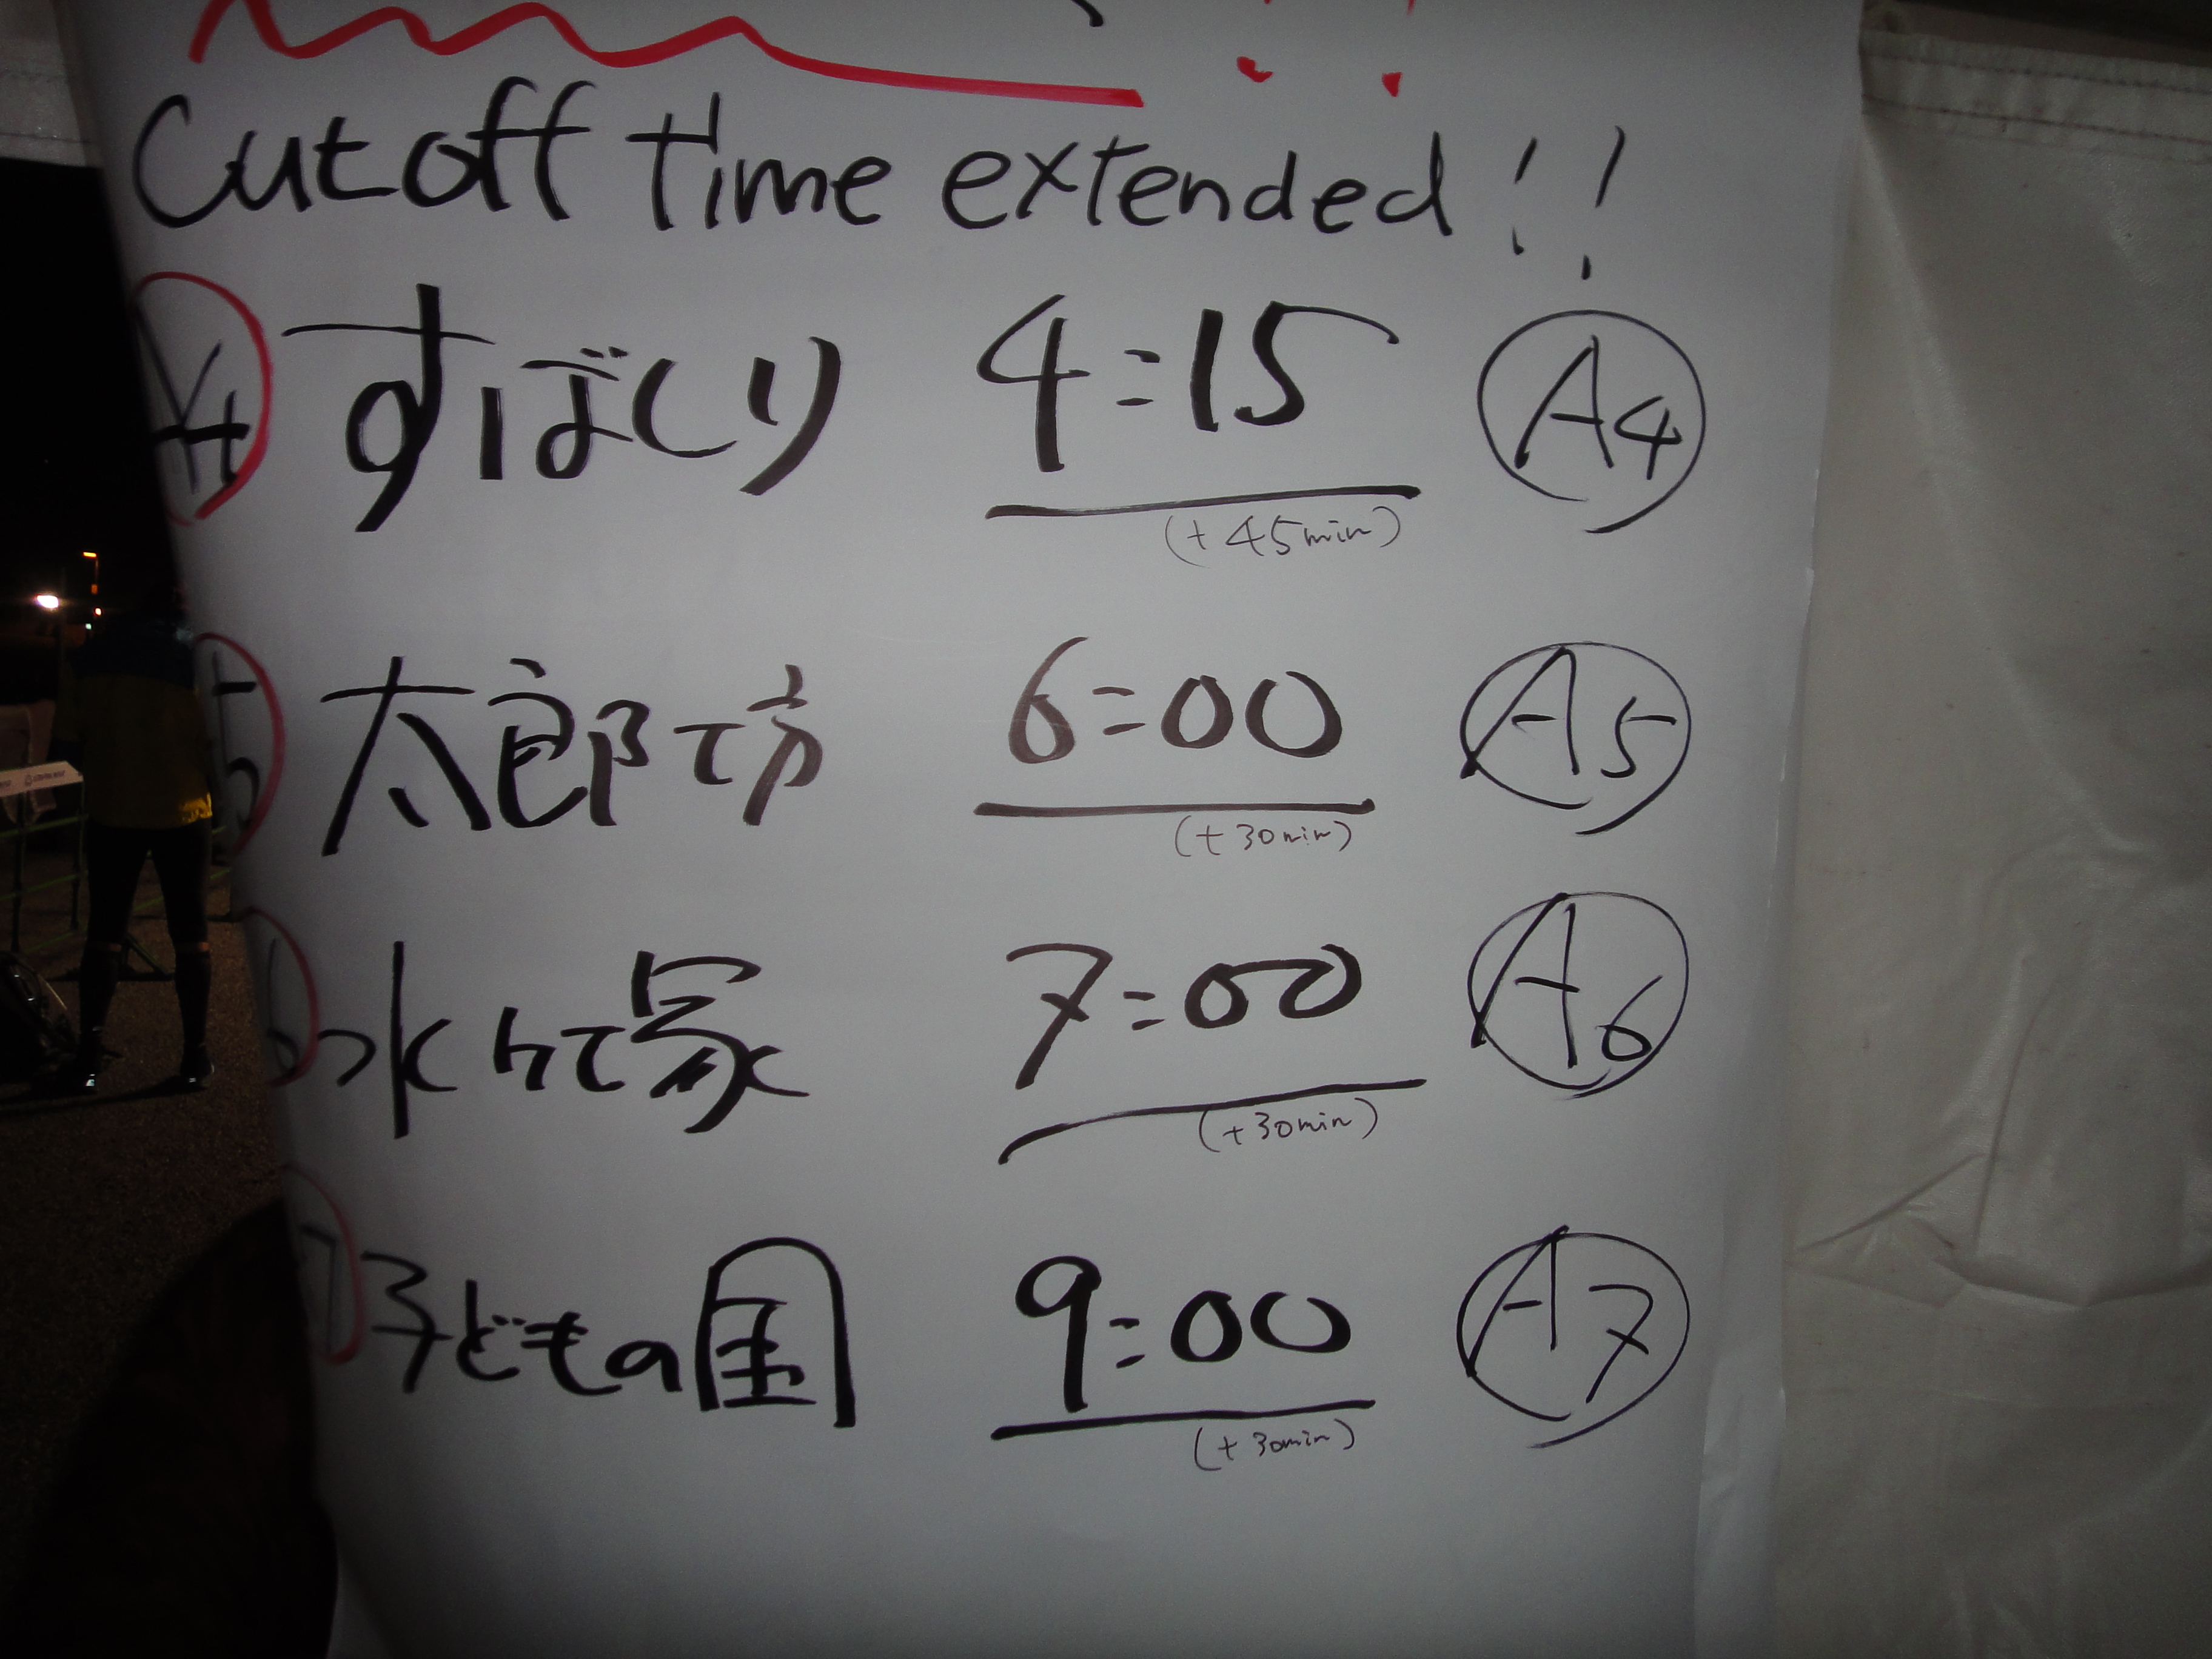 Cutoff time extended!!
A4 すばしり 4:15 A4
(+45min)
5 太郎坊 6:00 A5
(+30min)
6 水ヶ塚 7:00 A6
(+30min)
7 子どもの国 9:00 A7
(+30min)